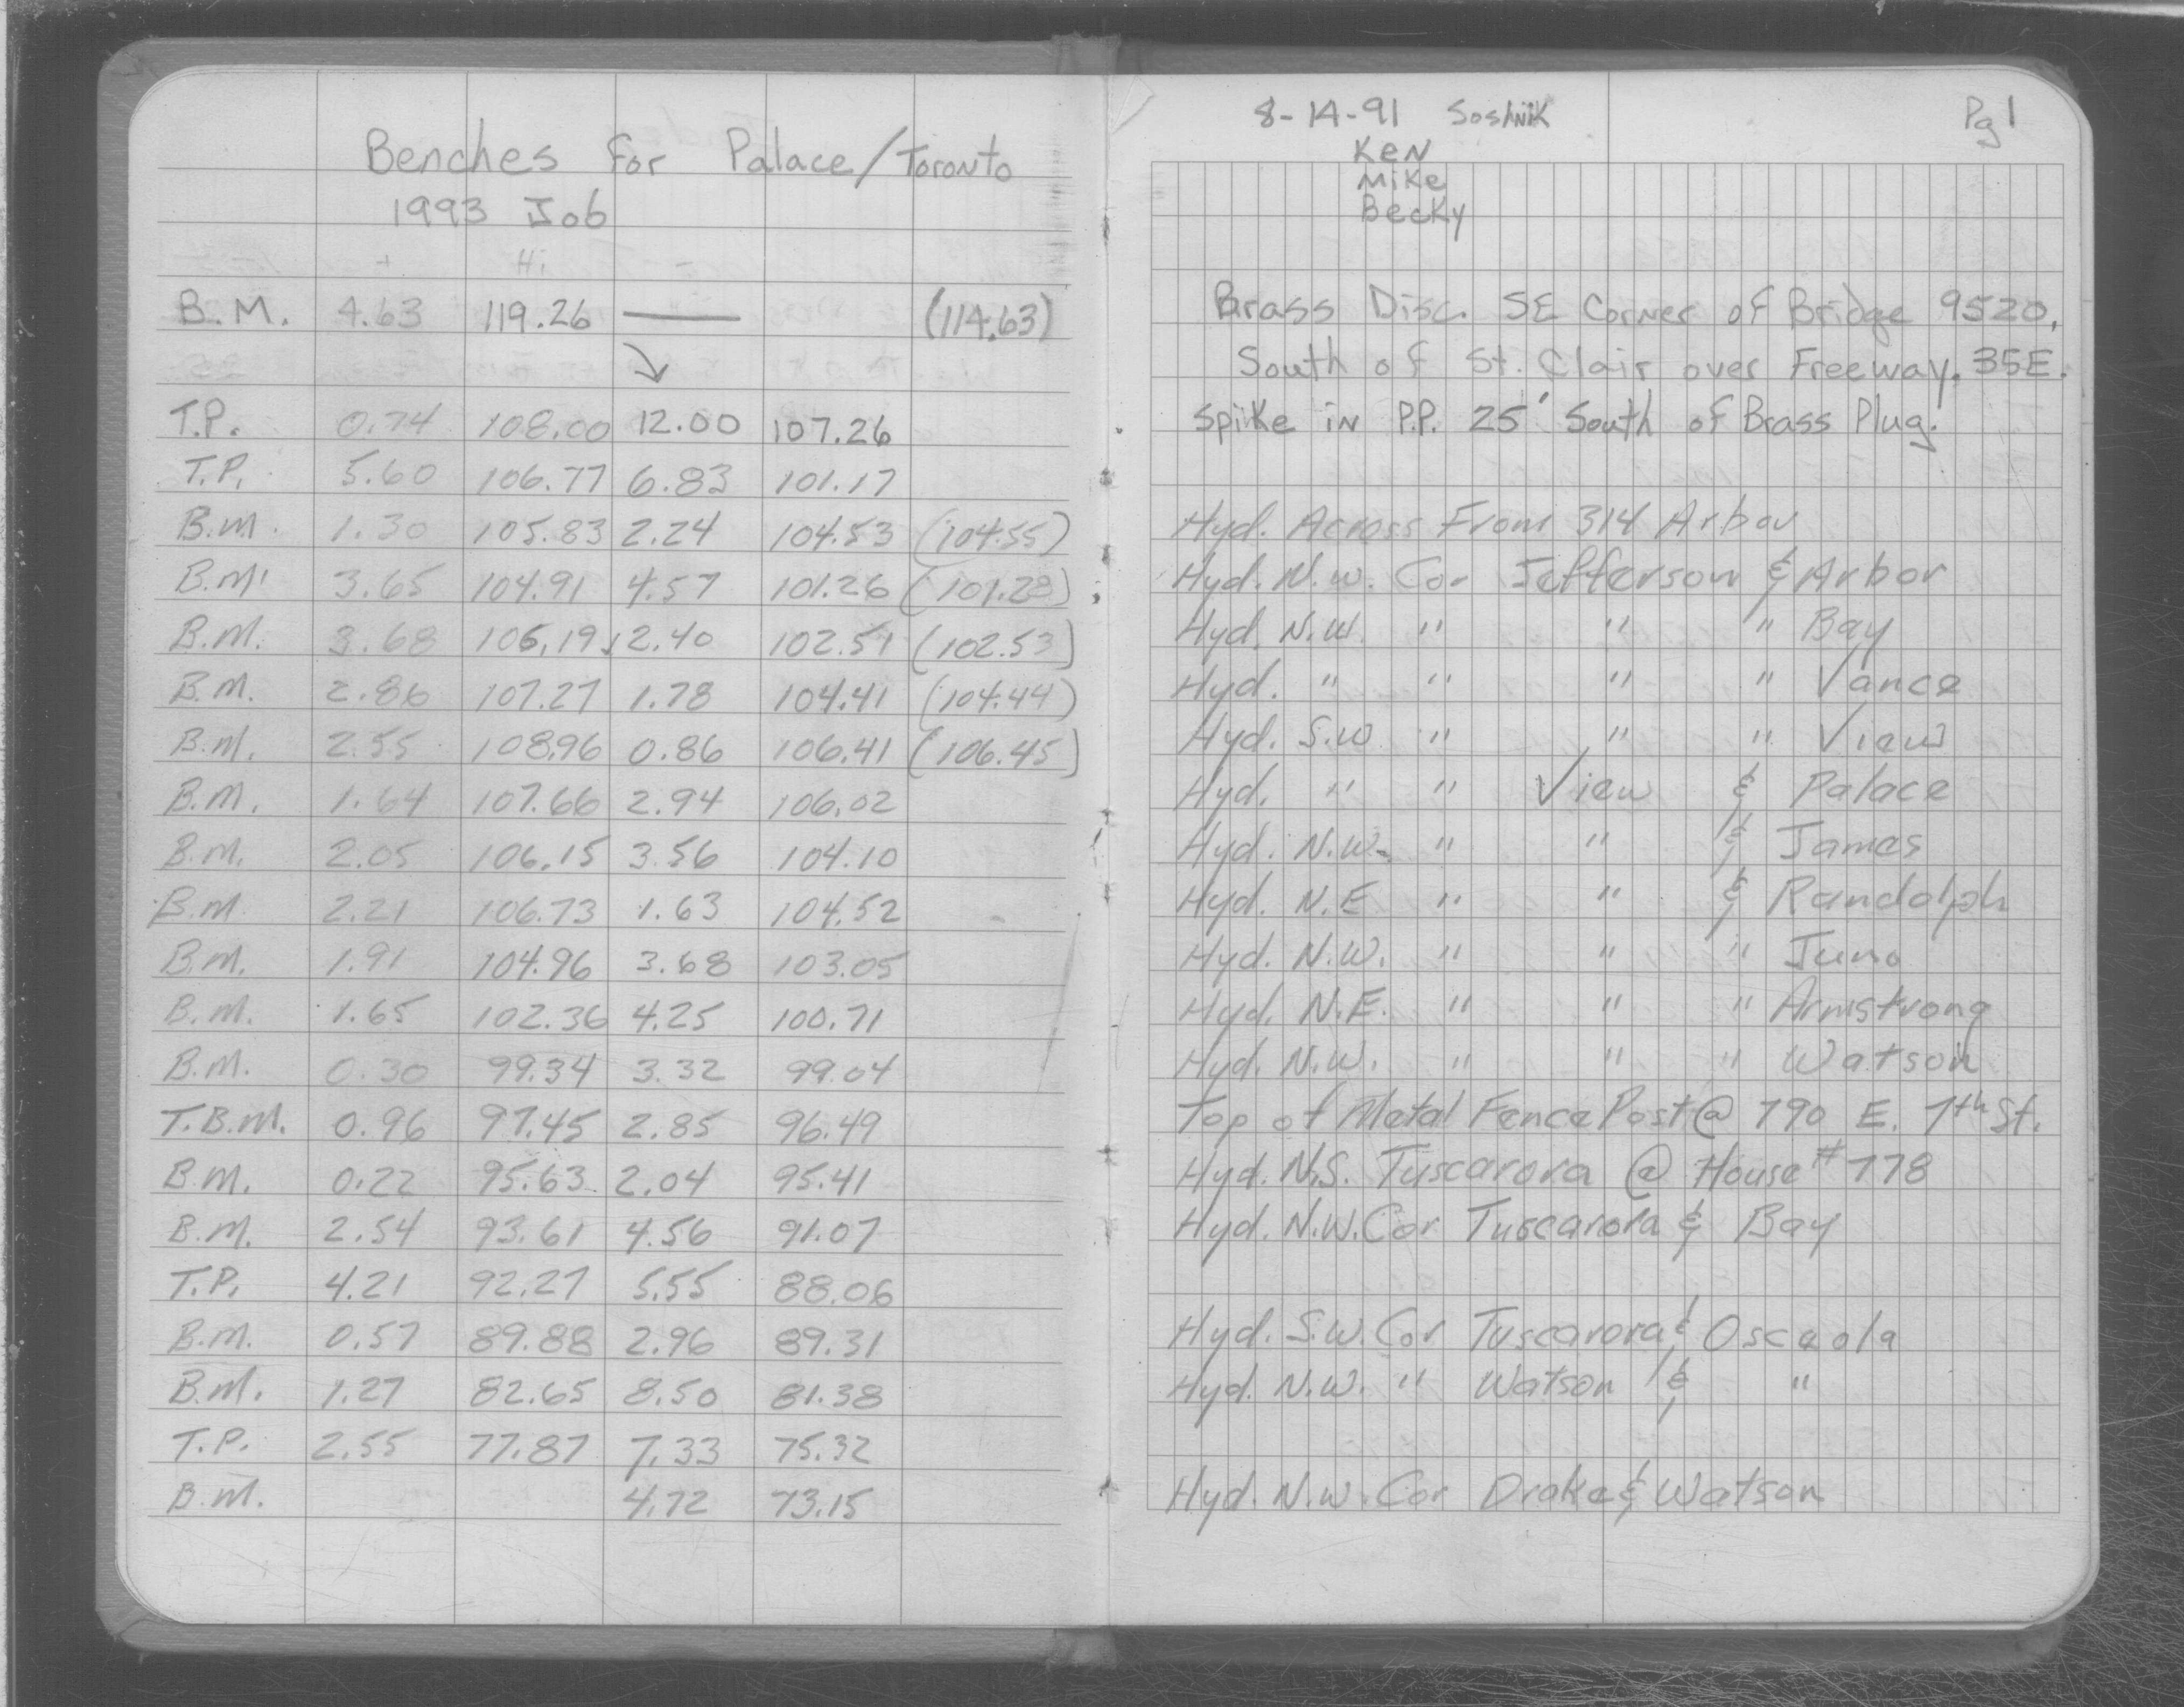 Benches For Palace/Toronto
1993 Job
+ Hi -
B.M. 4.63 119.26 — (114.63)
T.P. 0.74 108.00 12.00 107.26
T.P. 5.60 106.77 6.83 101.17
B.M. 1.30 105.83 2.24 104.53 (104.55)
B.M. 3.65 104.91 4.57 101.26 (101.28)
B.M. 3.68 106.19 2.40 102.51 (102.53)
B.M. 2.86 107.27 1.78 104.41 (104.44)
B.M. 2.55 108.96 0.86 106.41 (106.45)
B.M. 1.64 107.66 2.94 106.02
B.M. 2.05 106.15 3.56 104.10
B.M. 2.21 106.73 1.63 104.52
B.M. 1.91 104.96 3.68 103.05
B.M. 1.65 102.36 4.25 100.71
B.M. 0.30 99.34 3.32 99.04
T.B.M. 0.96 97.45 2.85 96.49
B.M. 0.22 95.63 2.04 95.41
B.M. 2.54 93.61 4.56 91.07
T.P. 4.21 92.27 5.55 88.06
B.M. 0.57 89.88 2.96 89.31
B.M. 1.27 82.65 8.50 81.38
T.P. 2.55 77.87 7.33 75.32
B.M. 4.72 73.15
8-14-91 Soshnik Pg 1
Ken
Mike
Becky
Brass Disc. SE Corner of Bridge 9520,
South of St. Clair over Freeway. 35E.
Spike in P.P. 25' South of Brass Plug.
Hyd. Across From 314 Arbor
Hyd. N.W. Cor Jefferson & Arbor
Hyd. N.W. " " " Bay
Hyd. " " " " Vance
Hyd. S.W " " " View
Hyd. " " View & Palace
Hyd. N.W. " " & James
Hyd. N.E " " & Randolph
Hyd. N.W. " " " Juno
Hyd. N.E. " " " Armstrong
Hyd. N.W. " " " Watson
Top of Metal Fence Post @ 790 E. 7th St.
Hyd. N.S. Tuscarora @ House # 778
Hyd. N.W. Cor Tuscarora & Bay
Hyd. S.W. Cor Tuscarora & Osceola
Hyd. N.W. " Watson & "
Hyd. N.W. Cor Drake & Watson